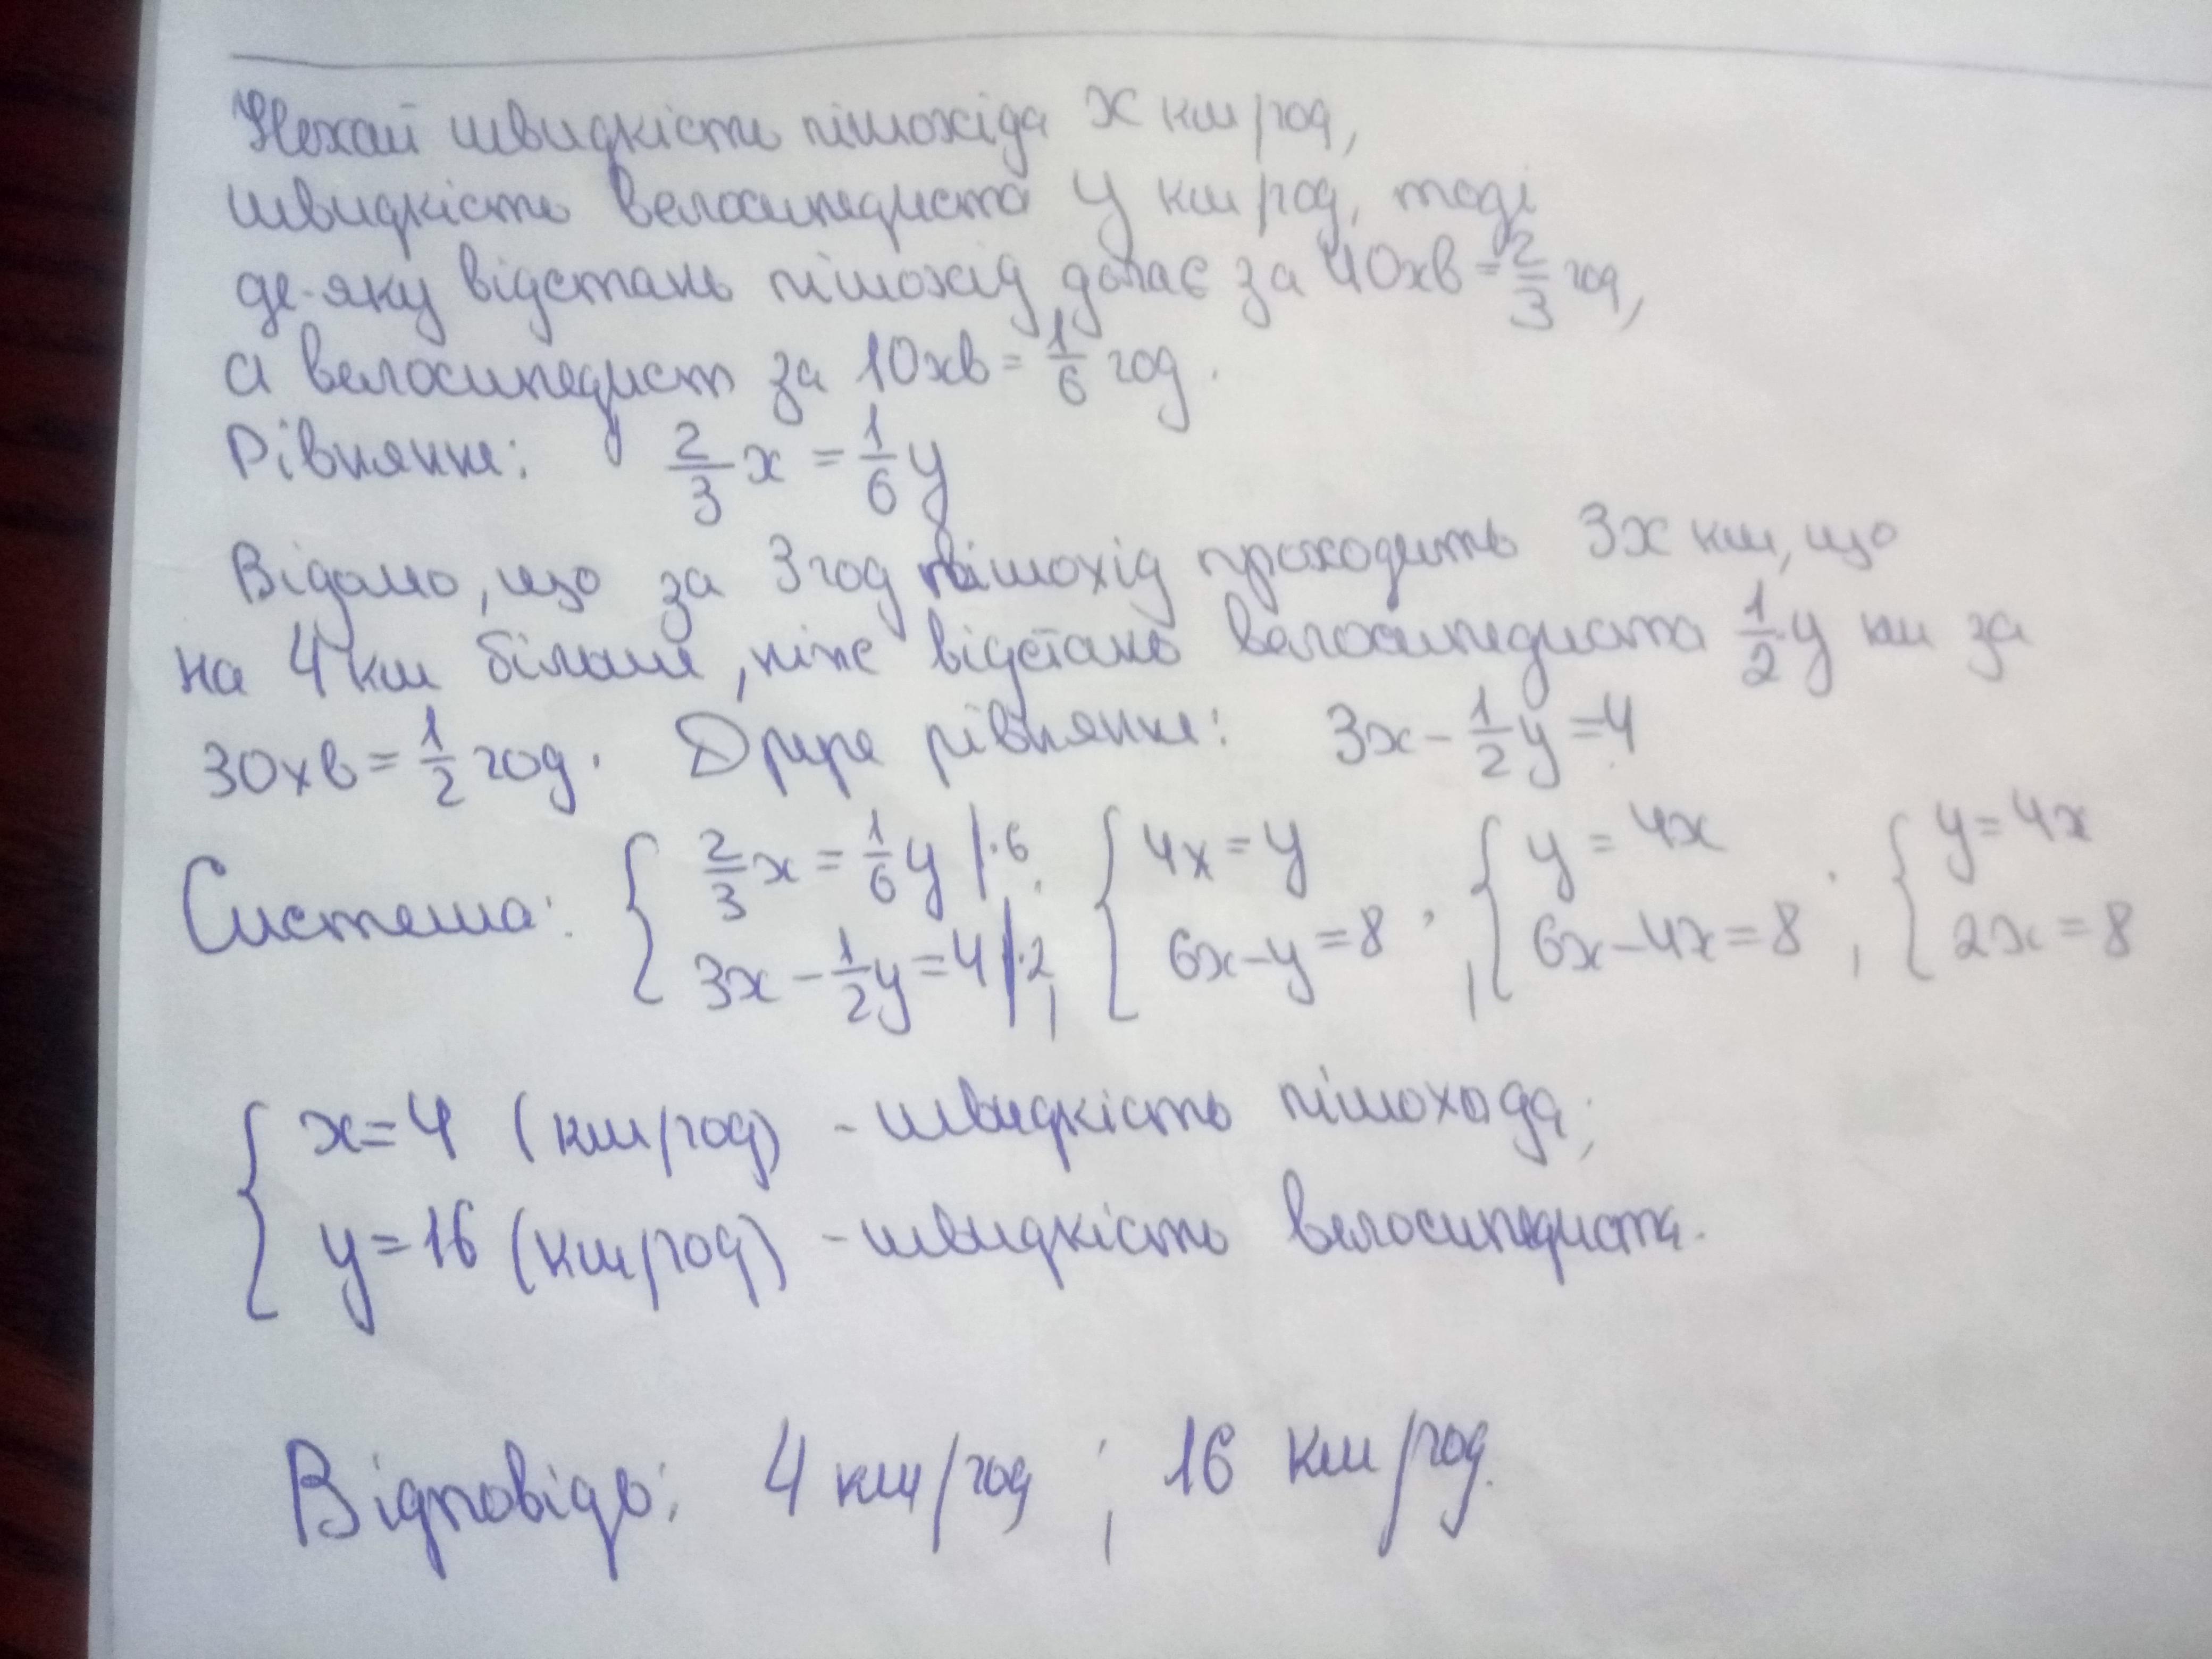 Нехай швидкість пішохіда x км/год,
швидкість велосипедиста y км/год, тоді
де-яку відстань пішохід долає за 40хв = 2/3 год,
а велосипедист за 10хв = 1/6 год.
Рівняння: 2/3 x = 1/6 y
Відомо, що за 3 год пішохід проходить 3x км, що
на 4 км більше, ніж відстань велосипедиста 1/2 y км за
30хв = 1/2 год. Друге рівняння: 3x - 1/2 y = 4
Система: { 2/3 x = 1/6 y |·6 ; 3x - 1/2 y = 4 |·2 ; { 4x = y ; 6x - y = 8 ; { y = 4x ; 6x - 4x = 8 ; { y = 4x ; 2x = 8
{ x = 4 (км/год) - швидкість пішохода;
y = 16 (км/год) - швидкість велосипедиста.
Відповідь: 4 км/год ; 16 км/год.